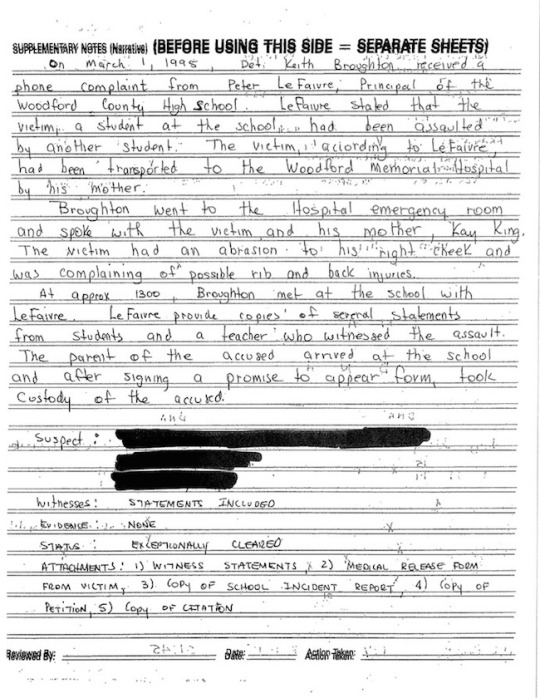 SUPPLEMENTARY NOTES (Narrative) (BEFORE USING THIS SIDE = SEPARATE SHEETS)
On March 1, 1995, Det. Keith Broughton received a
phone complaint from Peter LeFaivre, Principal of the
Woodford County High School. LeFaivre stated that the
victim, a student at the school, had been assaulted
by another student. The victim, according to LeFaivre,
had been transported to the Woodford Memorial Hospital
by his mother.
Broughton went to the Hospital emergency room
and spoke with the victim and his mother, Kay King.
The victim had an abrasion to his right cheek and
was complaining of possible rib and back injuries.
At approx 1300, Broughton met at the school with
LeFaivre. LeFaivre provide copies of several statements
from students and a teacher who witnessed the assault.
The parent of the accused arrived at the school
and after signing a promise to appear form, took
Custody of the accused.
Suspect :
Witnesses: STATEMENTS INCLUDED
EVIDENCE : NONE
STATUS : EXCEPTIONALLY CLEARED
ATTACHMENTS: 1) WITNESS STATEMENTS, 2) MEDICAL RELEASE FORM
FROM VICTIM, 3) COPY OF SCHOOL INCIDENT REPORT, 4) COPY OF
PETITION, 5) COPY OF CITATION
Reviewed By: Date: Action Taken: